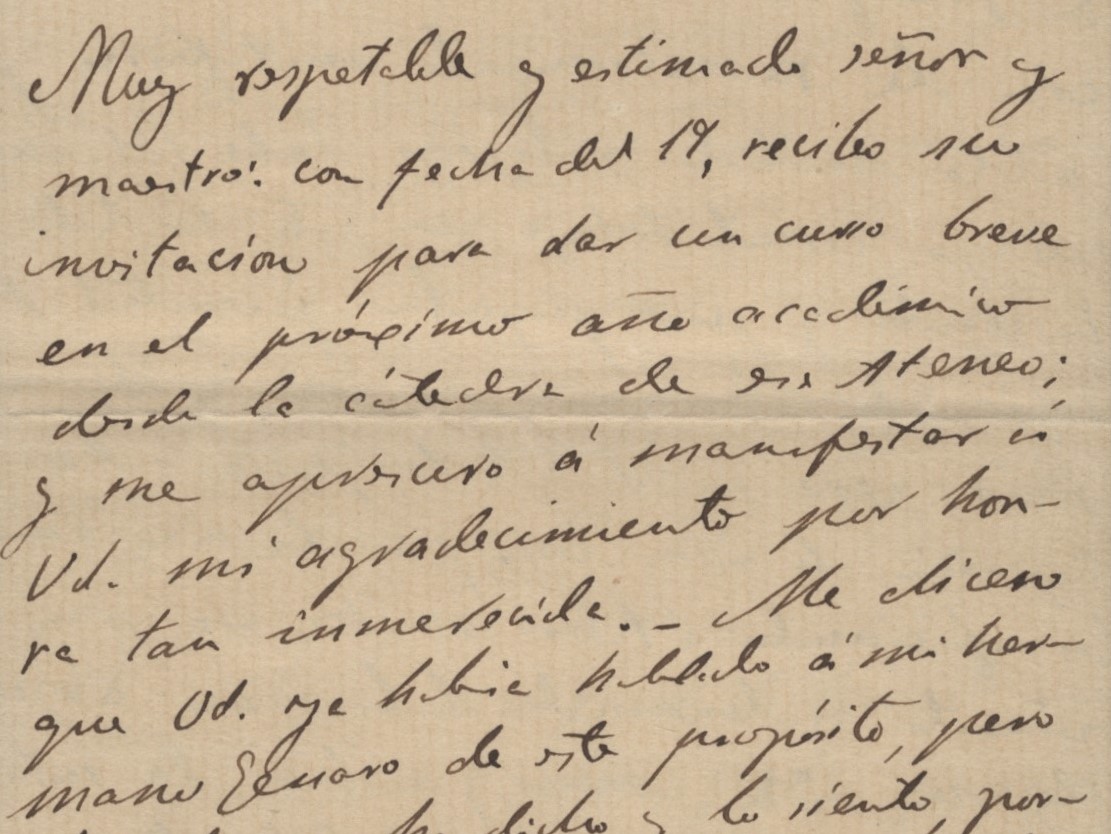 Muy respetable y estimado señor y
maestro: con fecha del 19, recibo su
invitación para dar un curso breve
en el próximo año académico
desde la cátedra de ese Ateneo;
y me apresuro á manifestar á
Vd. mi agradecimiento por hon-
ra tan inmerecida. _ Me dicen
que Vd. ya había hablado á mi her-
mano Genaro de este propósito, pero
dicho y lo siento, por-